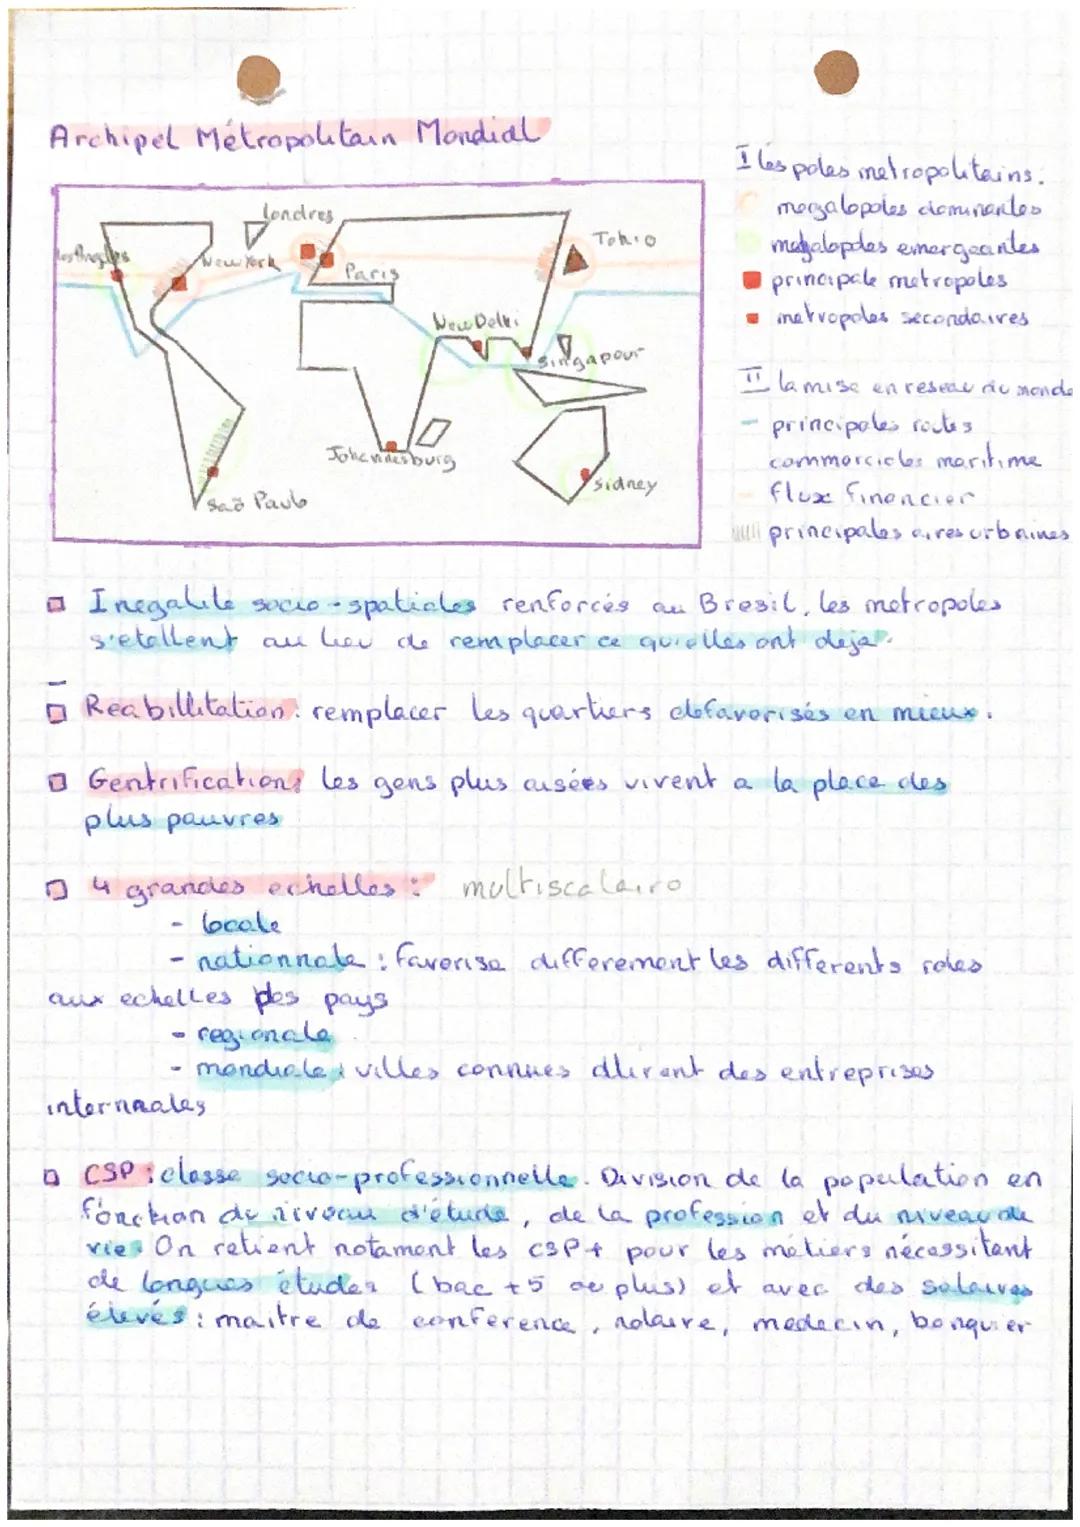 Archipel Métropolitain Mondial
Londres
Los Angeles
New York
Paris
Tokio
New Delhi
Singapour
Johannesburg
Saõ Paulo
Sidney
I les poles metropolitains:
megalopoles dominantes
megalopoles emergeantes
principale metropoles
metropoles secondaires
II la mise en reseau du monde
principales routes
commerciales maritime
flux financier
principales aires urbaines
Inegalite socio-spatiales renforcés au Bresil, les metropoles
s'etallent au lieu de remplacer ce qu'elles ont deja.
Reabillitation: remplacer les quartiers defavorisés en mieux.
Gentrification: les gens plus aisées vivent a la place des
plus pauvres
4 grandes echelles: multiscalaire
- locale
- nationnale: favorise differement les differents roles
aux echelles des pays
- regionale
- mondiale: villes connues attirent des entreprises
CSP: classe socio-professionnelle. Division de la population en
fonction du niveau d'étude, de la profession et du niveau de
vie. On retient notament les CSP+ pour les métiers nécessitant
de longues études (bac +5 ou plus) et avec des salaires
élevés: maitre de conference, notaire, medecin, banquier